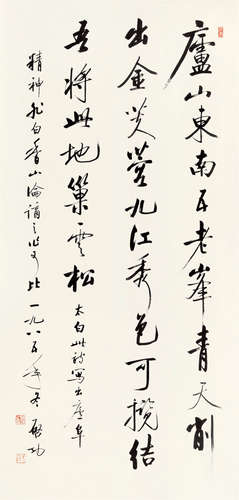 廬山東南五老峯青天削
出金芙蓉九江秀色可攬結
吾將此地巢雲松 太白此詩寫出廬阜
精神非白香山淪謫之作可比 一九八五年冬 啟功